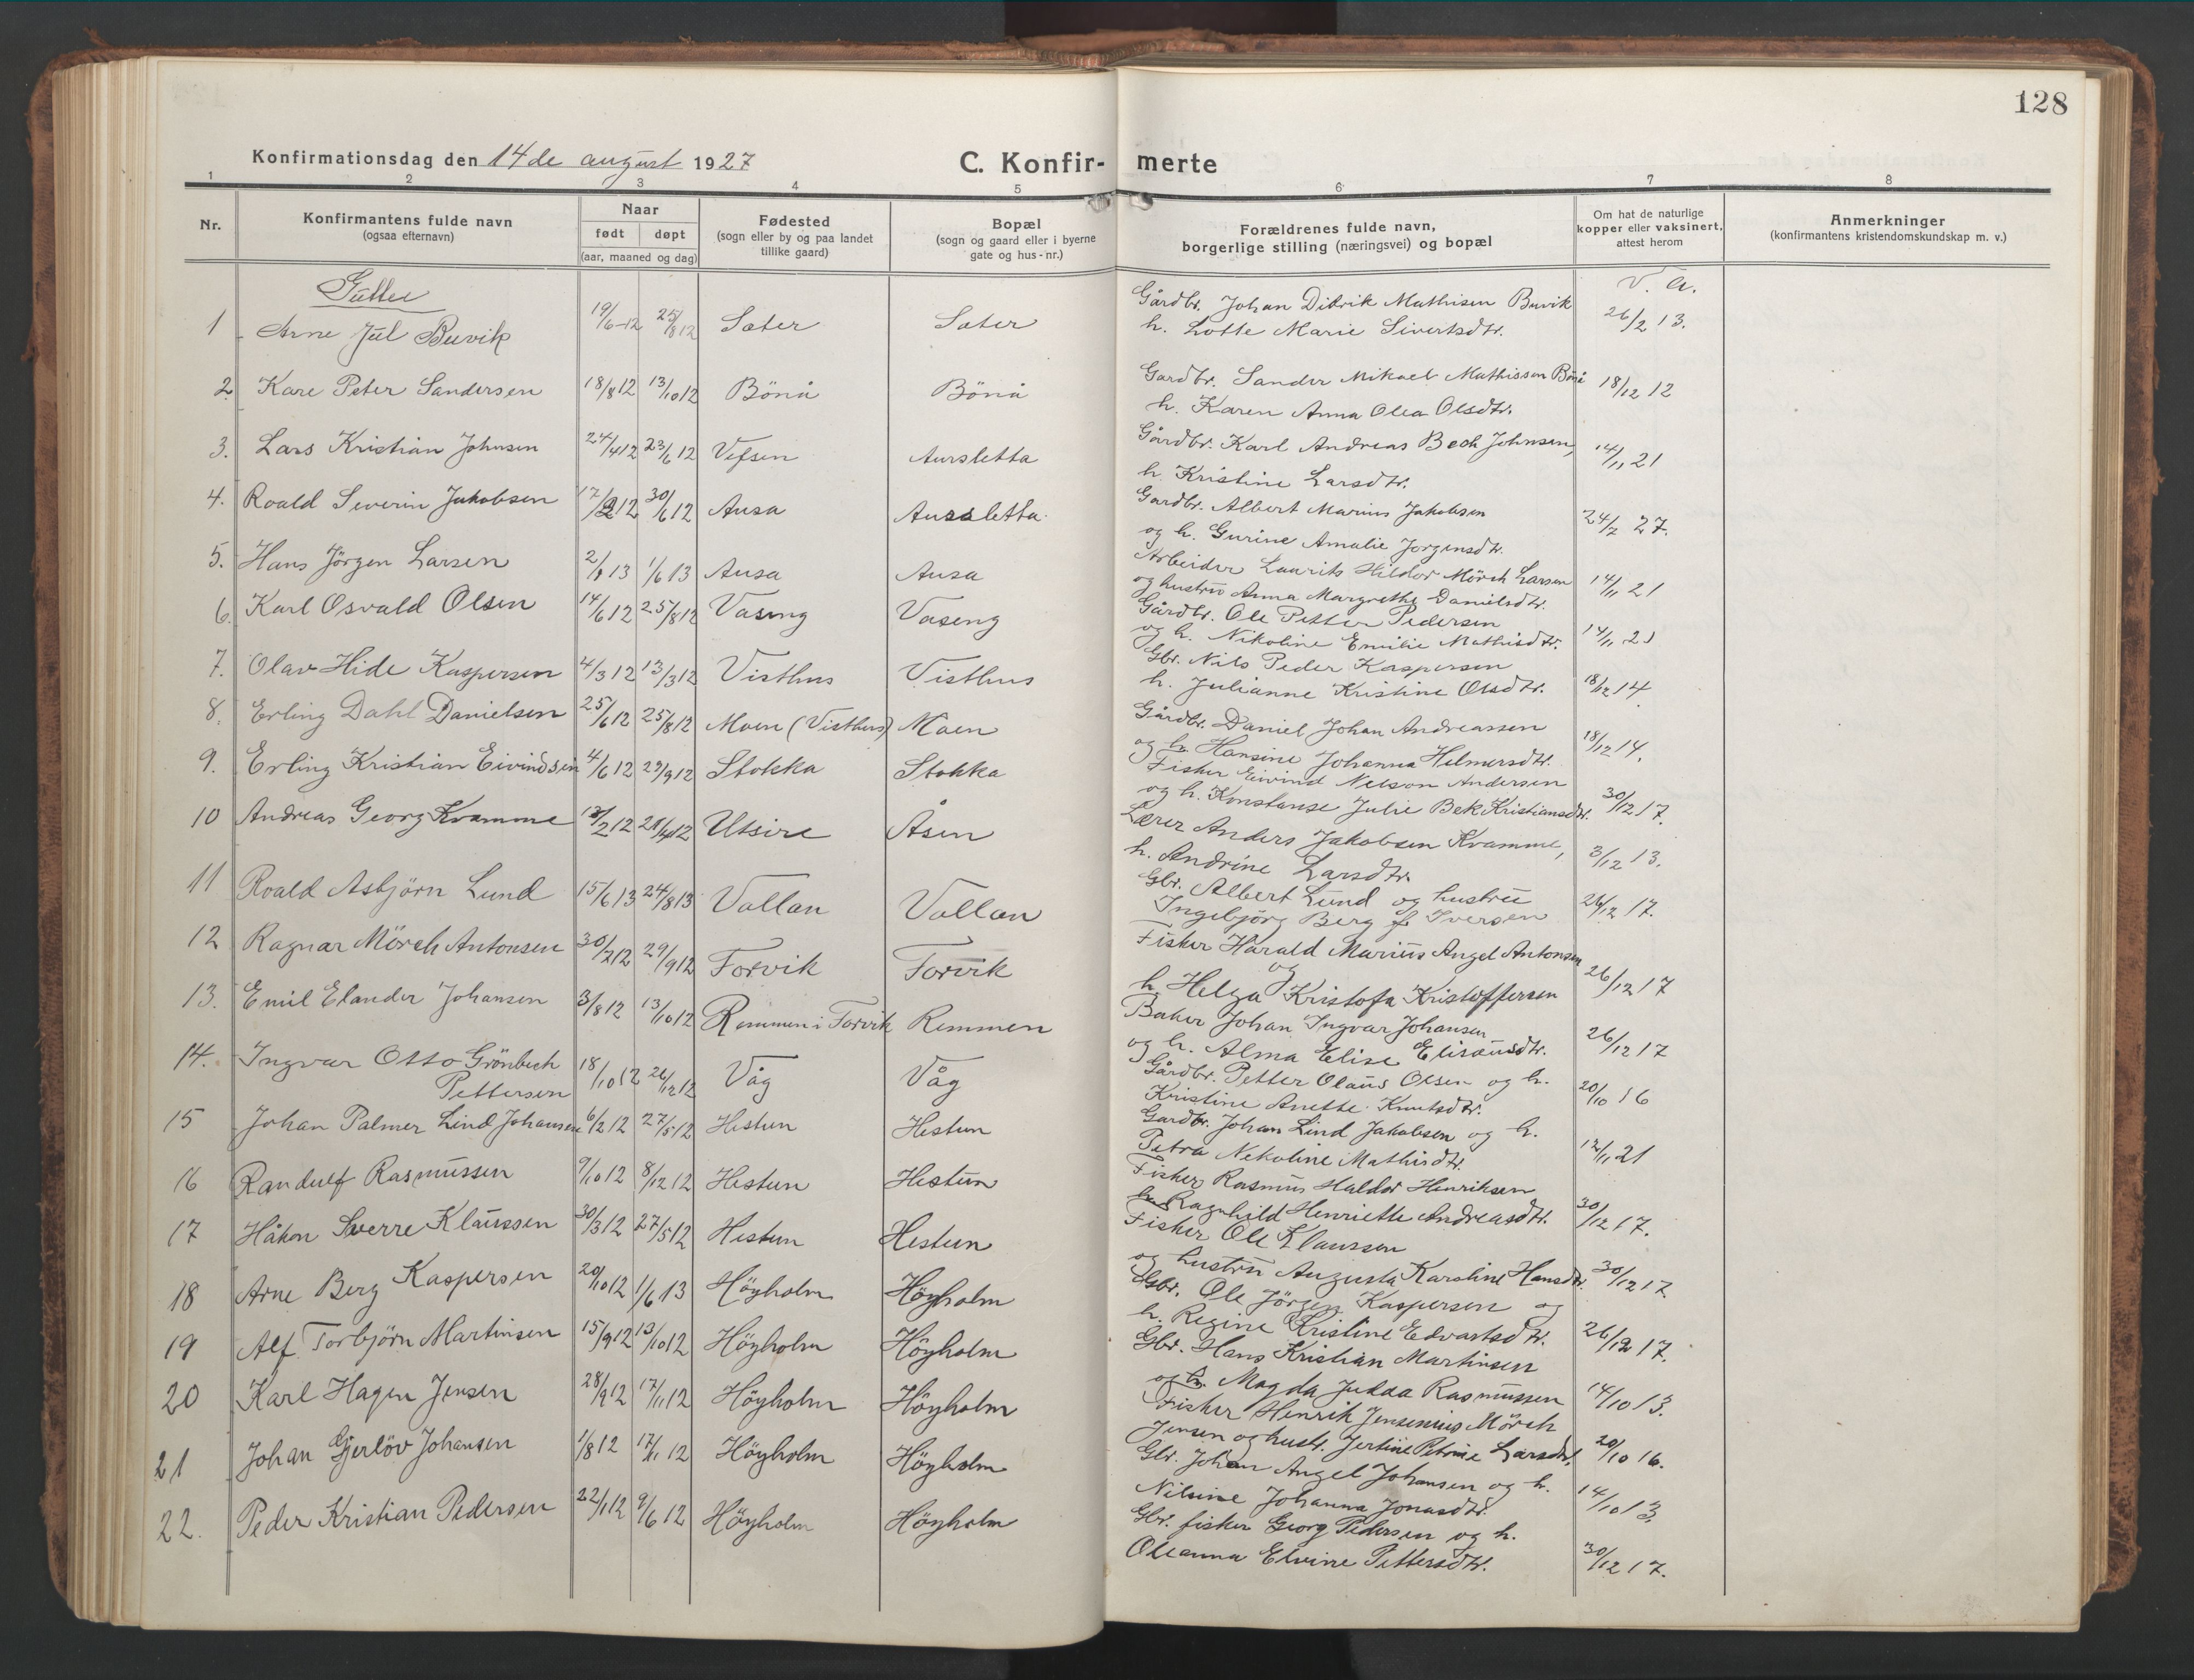 128
Konfirmationsdag den 14de august 1927
C. Konfir- merte
1 2 3 4 5 6 7 8
Nr.
Konfirmantens fulde navn
(ogsaa efternavn)
Naar
født døpt
(aar, maaned og dag)
Fødested
(sogn eller by og paa landet
tillike gaard)
Bopæl
(sogn og gaard eller i byerne
gate og hus-nr.)
Forældrenes fulde navn,
borgerlige stilling (næringsvei) og bopæl
Om hat de naturlige
kopper eller vaksinert,
attest herom
Anmerkninger
(konfirmantens kristendomskundskap m. v.)
Gutter
V. a.
1 Arne Jul Buvik 19/6-12 25/8 12 Sæter Sæter Gårdbr. Johan Didrik Mathisen Buvik 26/2 13.
h. Lotte Marie Sivertsdtr.
2 Kare Peter Sandersen 18/8 12 13/10 12 Bönå Bönå Gardbr. Sander Mikael Mathissen Bönå 18/12 12
h. Karen Anna Olea Olsdtr.
3. Lars Kristian Johnsen 24/4 12 23/6 12 Vefsen Aursletta Gårdbr. Karl Andreas Bech Johnsen, 14/11 21
h. Kristine Larsdtr.
4. Roald Severin Jakobsen 17/2 12 30/6 12 Ausa Ausaletta Gardbr. Albert Marius Jakobsen 24/7 27.
og h. Gurine Amalie Jorgensdtr.
5. Hans Jörgen Larsen 13 1/6 13 Ausa Ausa Arbeider Laurits Hildor Mörch Larsen 14/11 21
og hustru Anna Margrethe Danielsdtr.
6. Karl Osvald Olsen 14/6 12 25/8 12 Vaseng Vaseng Gårdbr. Ole Petter Pedersen 14/11 21
og h. Nikoline Emilie Mathisdtr.
7. Olav Hide Kaspersen 4/3 12 13/3 12 Visthus Visthus Gbr. Nils Peder Kaspersen 18/12 14
h. Julianne Kristine Olsdtr.
8. Erling Dahl Danielsen 25/6 12 25/8 12 Moen (Visthus) Moen Gårdbr. Daniel Johan Andreassen 18/12 14.
og h. Hansine Johanna Helmersdtr.
9. Erling Kristian Eivindsen 4/6 12 29/9 12 Stokka Stokka Fisker Eivind Nelson Andersen 30/12 17.
og h. Konstanse Julie Bek Kristiansdtr.
10 Andreas Georg Kvamme /2 12 21/4 12 Utsire Åsen Lærer Anders Jakobsen Kvamme, 3/12 13.
h. Andrine Larsdtr.
11 Roald Asbjörn Lund 15/6 13 24/8 13 Vollan Vollan Gbr. Albert Lund og hustru 26/12 17.
Ingebjörg Berg f Iversen
12 Ragnar Mörch Antonsen 30/7 12 29/9 12 Forvik Forvik Fisker Harald Marius Angel Antonsen 26/12 17
og
h. Helga Kristofa Kristoffersen
13. Emil Elander Johansen 3/8 12 13/10 12 Remmen i Forvik Remmen Baker Johan Ingvar Johansen 26/12 17
og h. Alma Elise Elisausdtr.
14. Ingvar Otto Grönbech 18/10 12 26/12 12 Våg Våg Gårdbr. Petter Olaus Olsen og h. 20/10 16
Pettersen Kristine Anette Knutsdtr.
15 Johan Palmer Lind Johansen 6/2 12 27/5 12 Hestun Hestun Gardbr. Johan Lind Jakobsen og h. 12/11 21
Petra Nekoline Mathisdtr.
16 Randulf Rasmussen 9/10 12 8/12 12 Hestun Hestun Fisker Rasmus Haldor Henriksen 30/12 17.
Ragnhild Henriette Andreasdtr.
17 Håkon Sverre Klaussen 30/3 12 27/5 12 Hestun Hestun Fisker Ole Klaussen 30/12 17.
og hustru Augusta Karoline Hansdtr.
18 Arne Berg Kaspersen 20/10 12 1/6 13 Höyholm Höyholm Gbr. Ole Jörgen Kaspersen og 26/12 17.
h. Regine Kristine Edvartsdtr.
19 Alf Torbjörn Martinsen 15/9 12 13/10 12 Höyholm Höyholm Gbr. Hans Kristian Martinsen 14/10 13.
og h. Magda Judda Rasmussen
20 Karl Hagen Jensen 28/9 12 17/11 12 Höyholm Höyholm Fisker Henrik Jensenius Mörch 20/10 16.
Jensen og hustr. Jertine Petrine Larsdtr.
21 Johan Gjerlöv Johansen 1/8 12 17/11 12 Höyholm Höyholm Gbr. Johan Angel Johansen og h. 14/10 13,
Nilsine Johanna Jonasdtr.
22. Peder Kristian Pedersen 22/1 12 9/6 12 Höyholm Höyholm Gbr. fisker Georg Pedersen og h. 30/12 17.
Oleanna Elvine Pettersdtr.